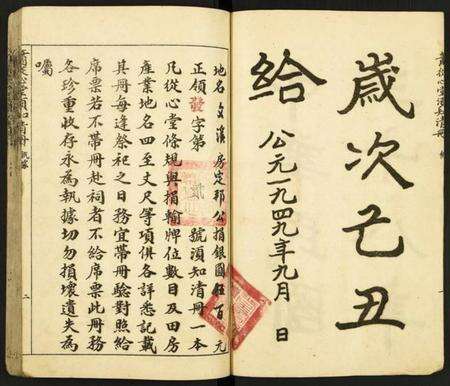 黃從心堂須知清冊
歲次己丑
給
公元一九四九年九月 日
地名文溪房定邦公捐銀圓伍百元
正領發字第貳號須知清冊一本
凡從心堂條規與捐輸牌位數目及田房
產業地名四至丈尺等項俱各詳悉記載
其冊每逢祭祀之日務宜帶冊驗對照給
席票若不帶冊赴祠者不給席票此冊務
各珍重收存永為執據切勿損壞遺失為
囑
黃從心堂須知清冊
二